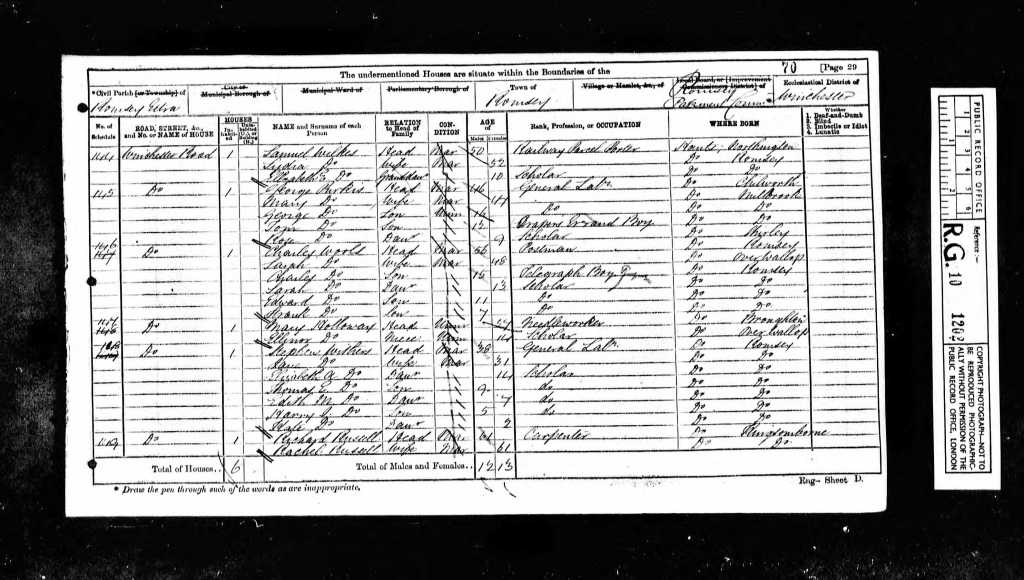 70 [Page 29
The undermentioned Houses are situate within the Boundaries of the
*Civil Parish [or Township] of
City or Municipal Borough of
Municipal Ward of
Parliamentary Borough of
Town of
Village or Hamlet, &c., of
Local Board, or [Improvement Commissioners District] of
Ecclesiastical District of
Romsey Extra Romsey Romsey Winchester
No. of Schedule
ROAD, STREET, &c., and No. or NAME of HOUSE
HOUSES
Inhabited
Uninhabited (U.), or Building (B.)
NAME and Surname of each Person
RELATION to Head of Family
CONDITION
AGE of
Males Females
Rank, Profession, or OCCUPATION
WHERE BORN
Whether
1. Deaf-and-Dumb
2. Blind
3. Imbecile or Idiot
4. Lunatic
144 Winchester Road 1 Samuel Wilkes Head Mar 50 Railway Parcel Porter Hants
Lydia Do Wife Mar 52 Do Romsey
Elizabeth E. Do 10 Scholar Do Do
145 Do 1 George Head Mar 46 General Labr Do Chilworth
Mary Do Wife Mar Do Millbrook
George Do Son Unm Do Do Do
Tom Do Son Drapers Errand Boy Do Do
Rose Do Daur 9 Scholar Do Shirley
146 Do 1 Charles Woods Head Mar 56 Postman Do Romsey
Sarah Do Wife Mar 48 Do Over Wallop
Charles Do Son 15 Telegraph Boy Do Romsey
Sarah Do Daur 13 Scholar Do Do
Edward Do Son 11 Do Do Do
Frank Do Son 7 Do Do Do
147 Do 1 Mary Holloway Head Unm Needleworker Do Broughton
Ellynor Do Niece Unm 14 Scholar Do Over Wallop
148 Do 1 Stephen Withers Head Mar 38 General Labr Do Romsey
Do Wife Mar 31 Do Do
Elizabeth A. Do Daur 14 Scholar Do Do
Thomas E. Do Son 9 do Do Do
Edith M. Do Daur 7 do Do Do
Harry Do Son 5 do Do Do
Kate Do Daur 2 Do Do
149 Do 1 Richard Russell Head Mar 61 Carpenter Do Kingsomborne
Rachel Russell Wife Mar 61 Do Do
Total of Houses.. 6 Total of Males and Females.. 12 13
* Draw the pen through such of the words as are inappropriate.
Eng- Sheet D.
PUBLIC RECORD OFFICE
1 2 3 4 5 6
Reference:-
R.G. 10
COPYRIGHT PHOTOGRAPH—NOT TO
BE REPRODUCED PHOTOGRAPHIC-
ALLY WITHOUT PERMISSION OF THE
PUBLIC RECORD OFFICE, LONDON